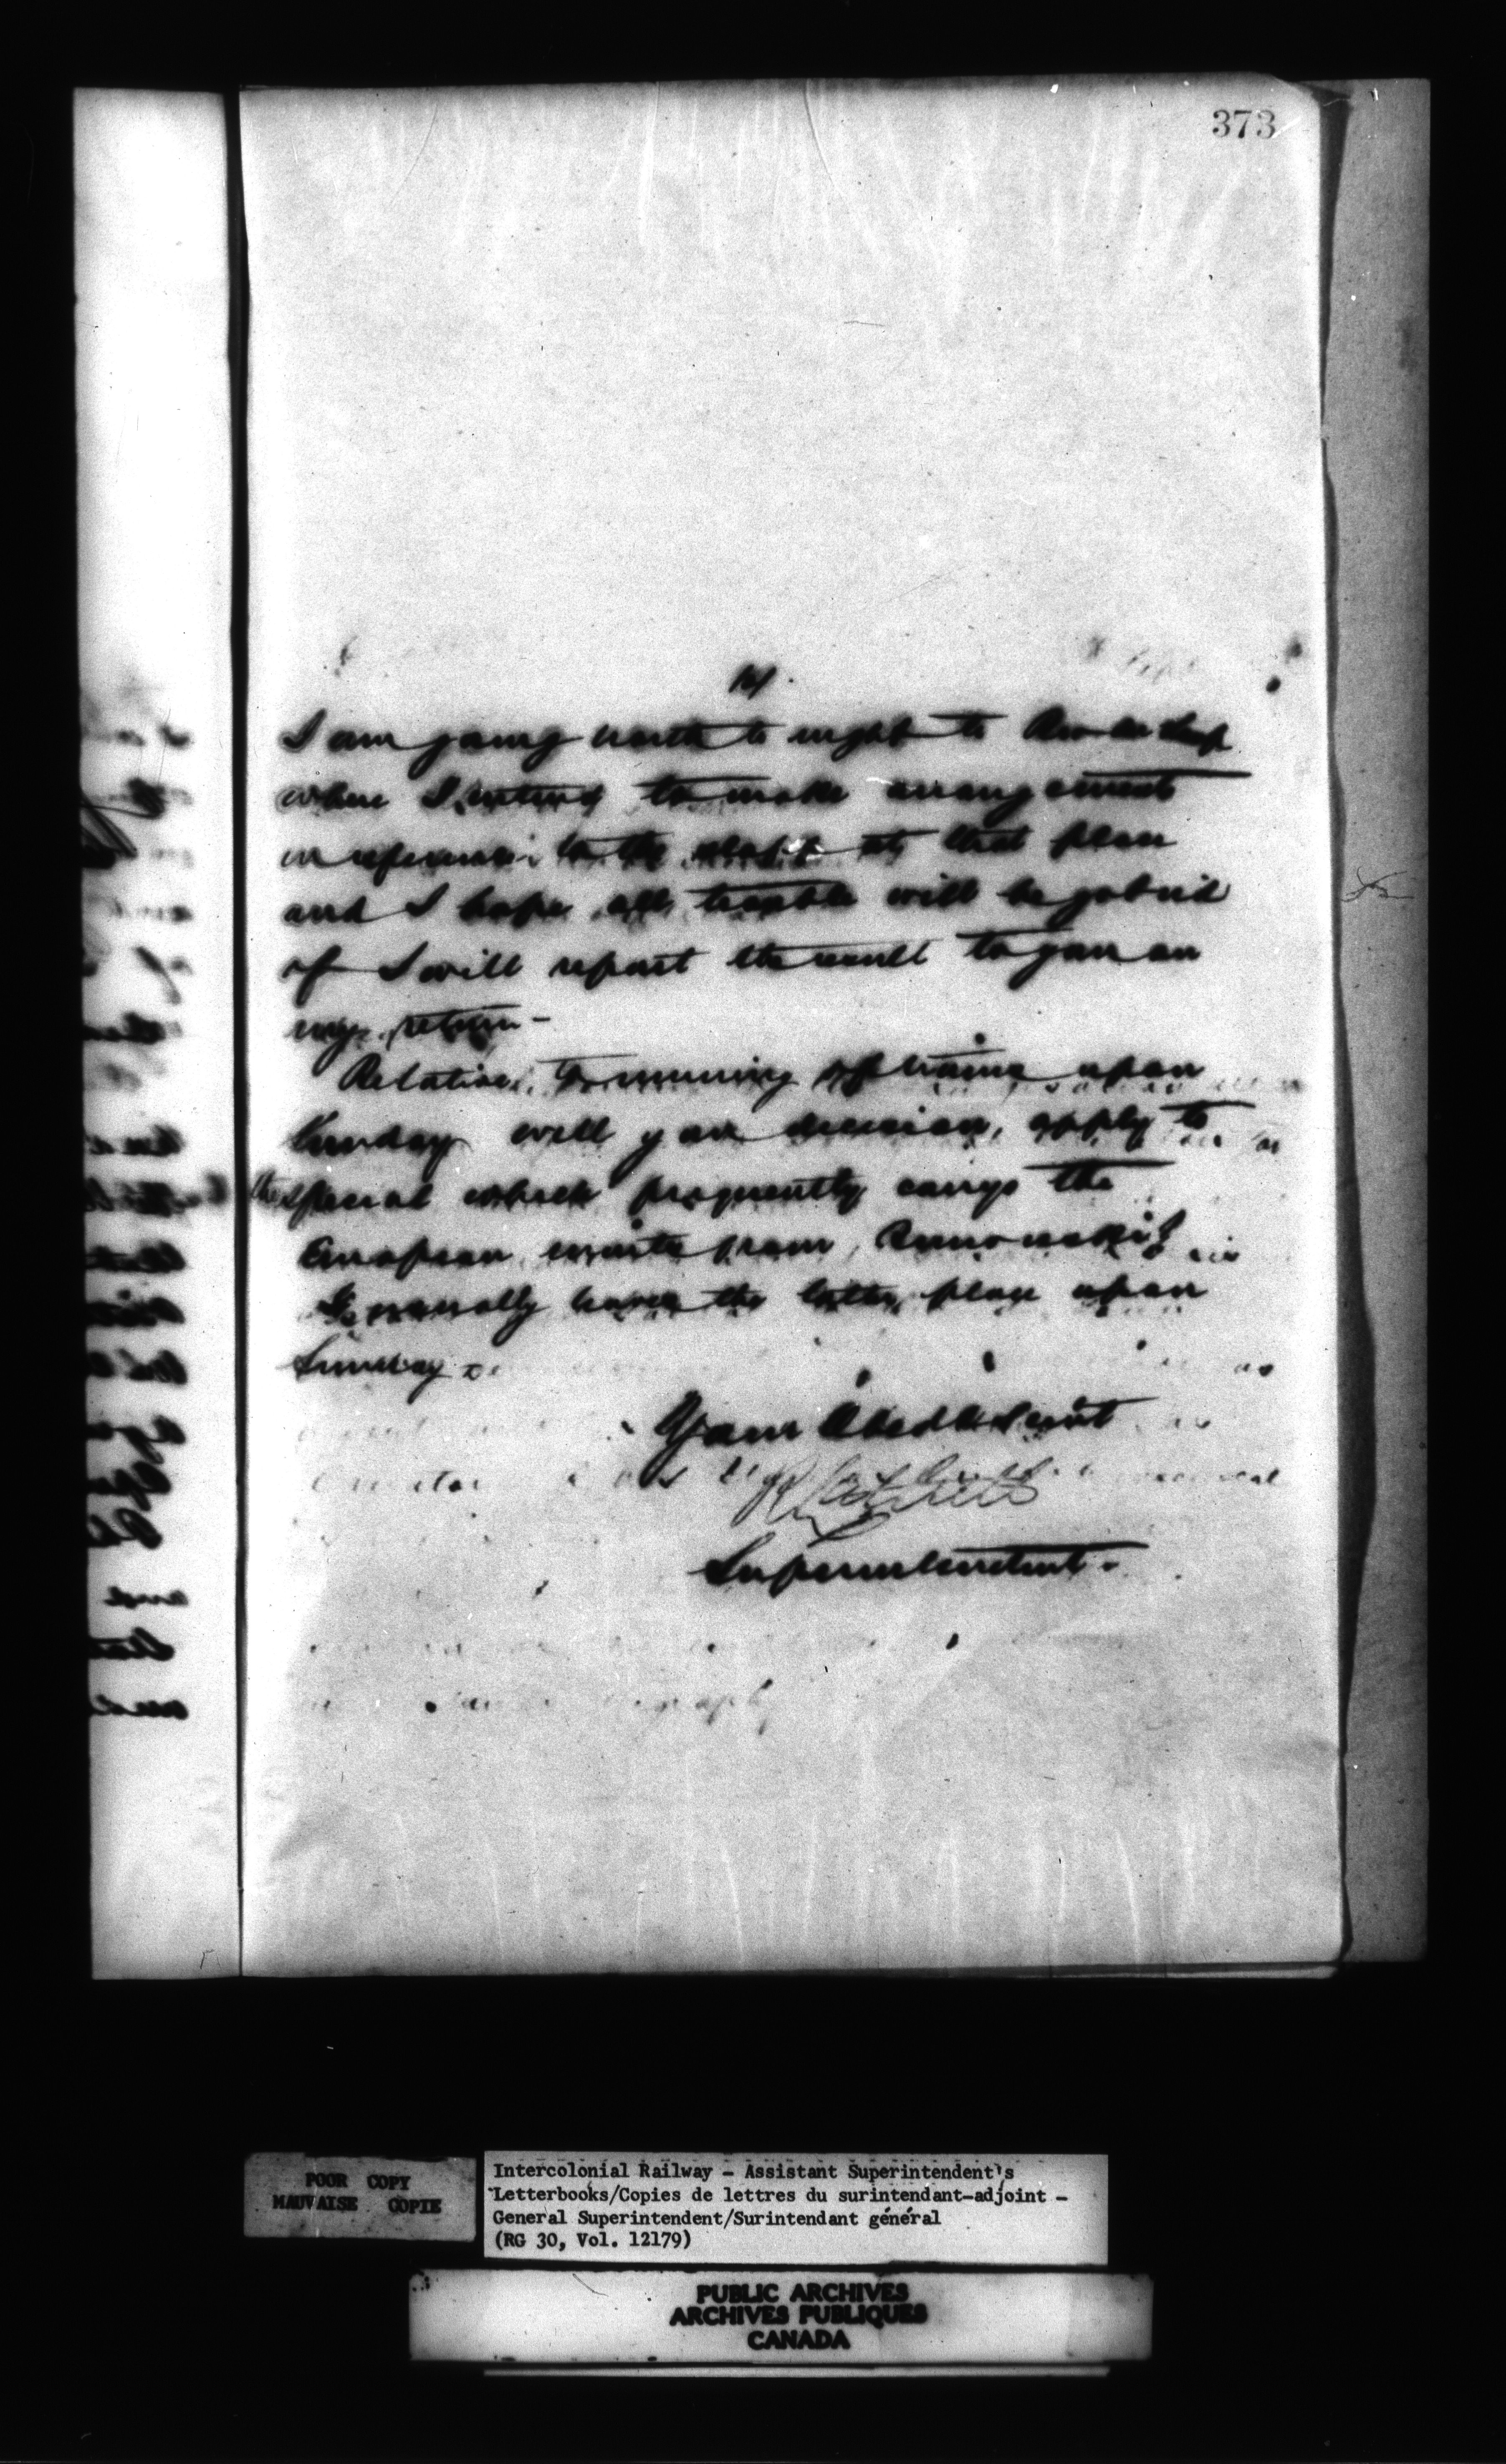 373
I am going north to night to
where I intend to make arrangements
in reference to the staff at that place
and I hope all trouble will be got rid
of I will report the result to you on
my return -
Relative to running of trains upon
Sunday will your decision, apply to
the special which frequently carrys the
European mails from Rimouski?
Generally leaves the latter place upon
Sunday
Your Obedt Servt
Superintendent.
POOR COPY
MAUVAISE COPIE
Intercolonial Railway - Assistant Superintendent's
Letterbooks/Copies de lettres du surintendant-adjoint -
General Superintendent/Surintendant général
(RG 30, Vol. 12179)
PUBLIC ARCHIVES
ARCHIVES PUBLIQUES
CANADA